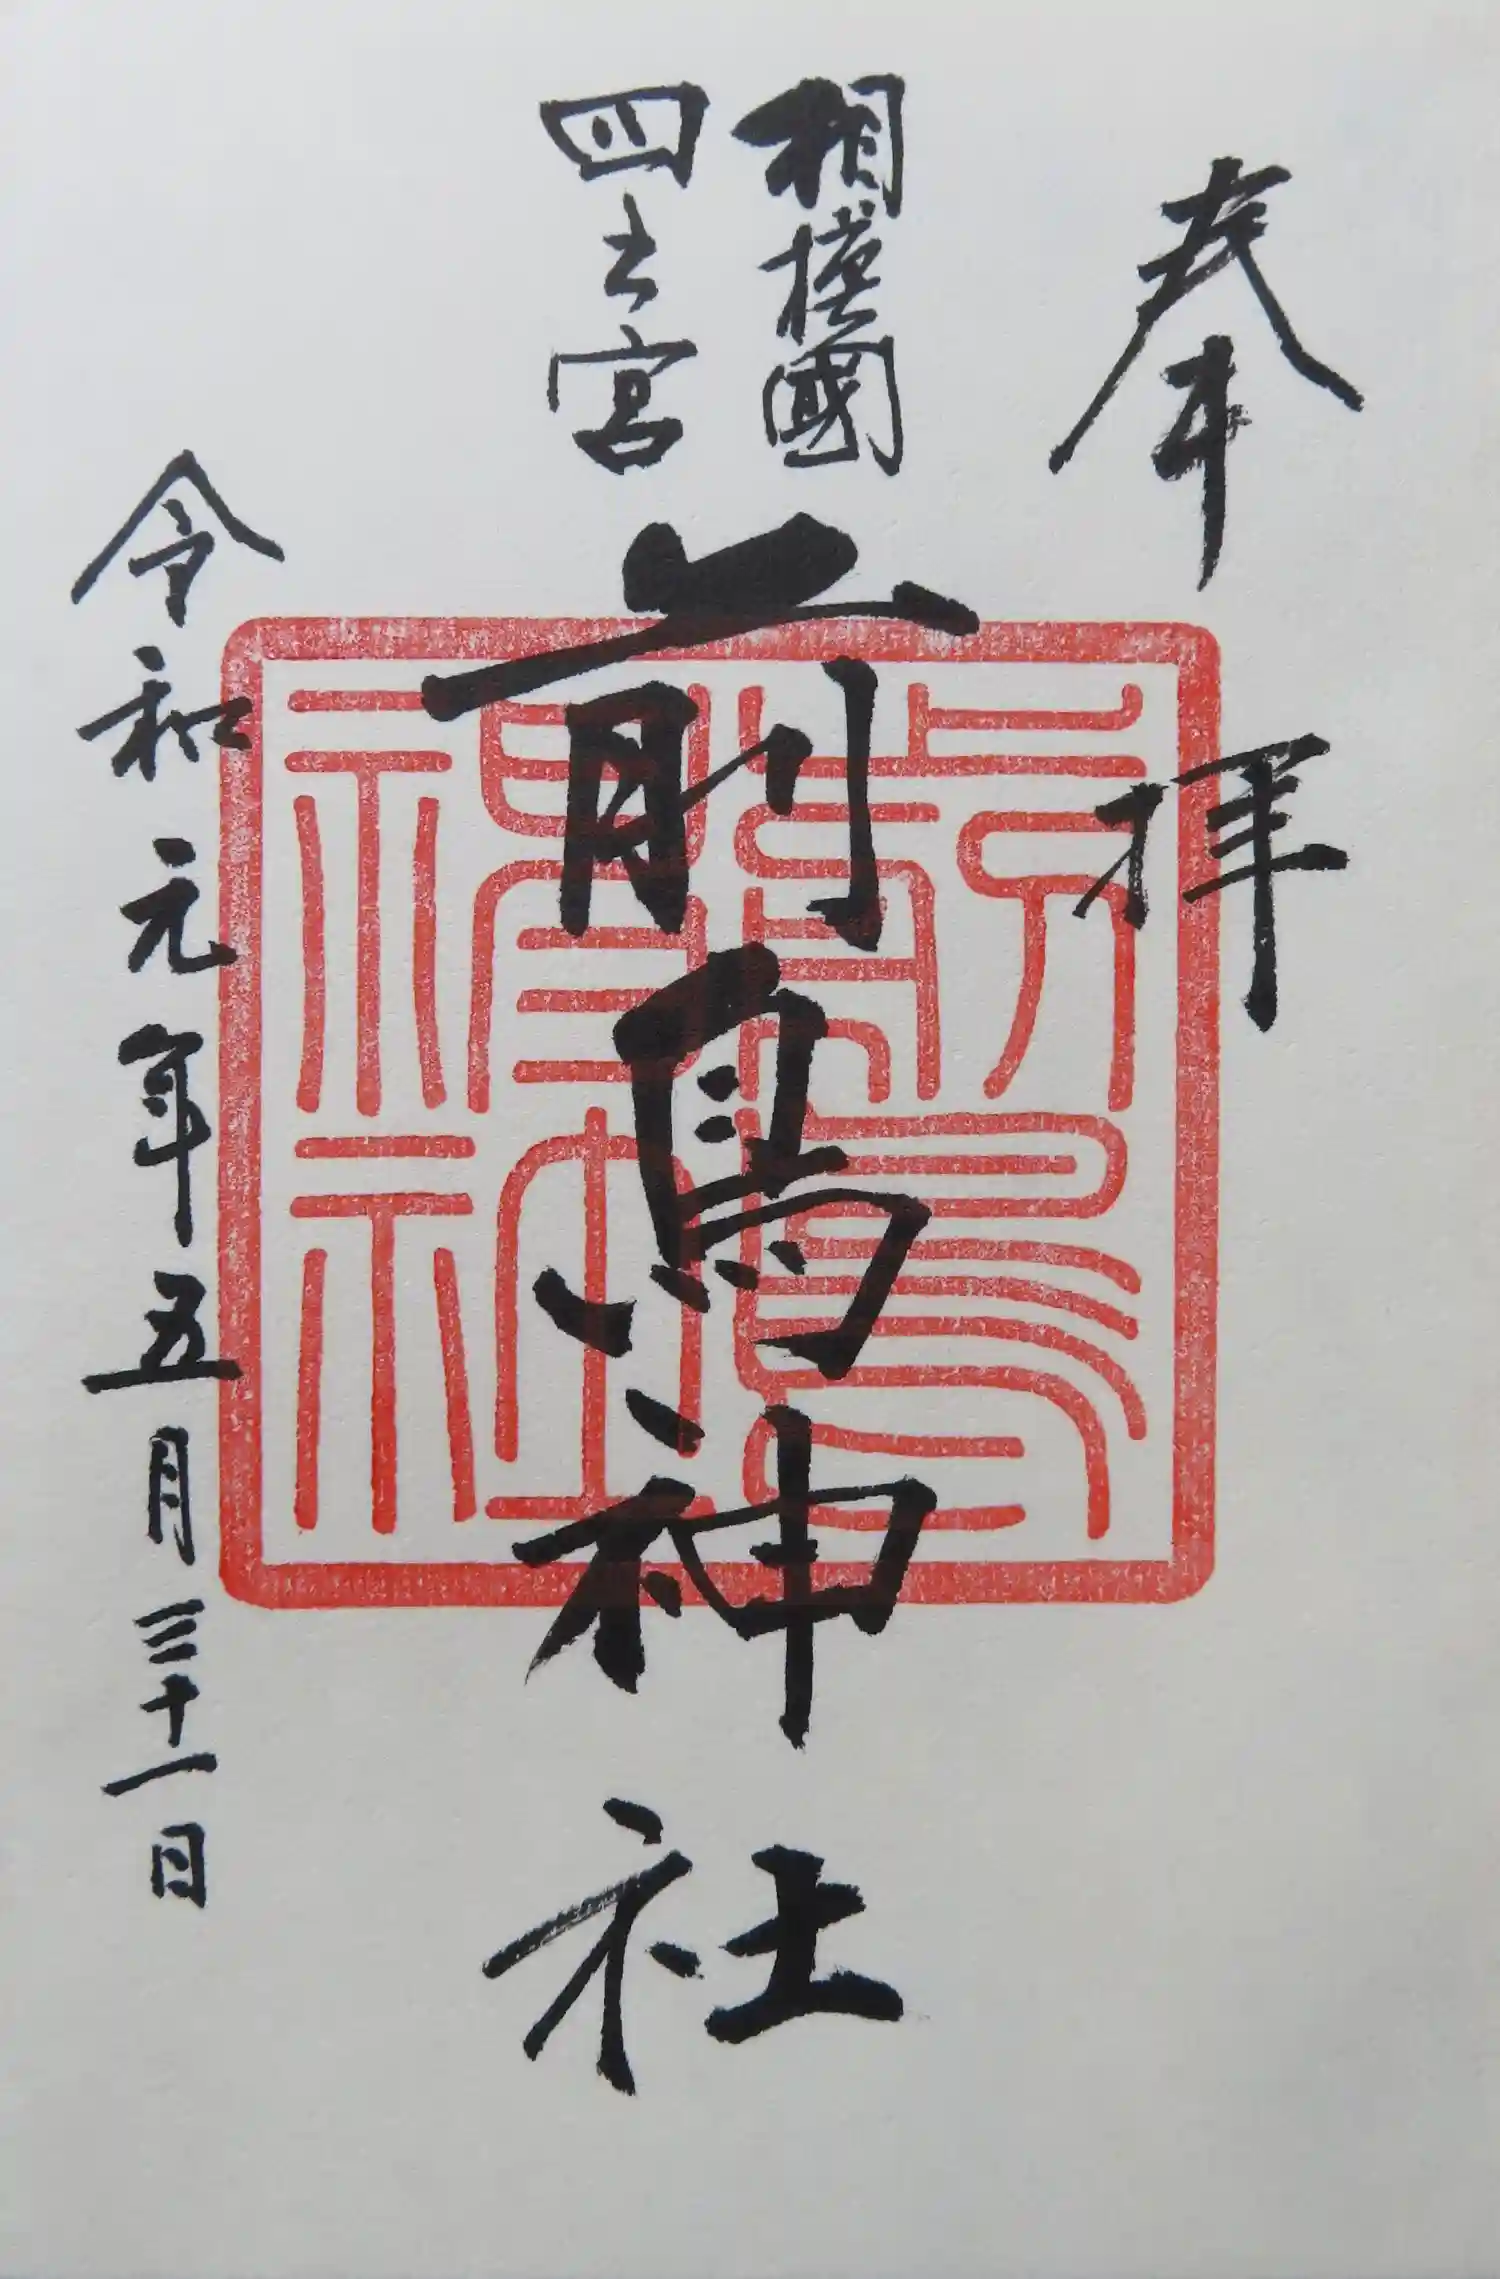 奉拝
相模國
四之宮
前鳥神社
令和元年五月三十一日